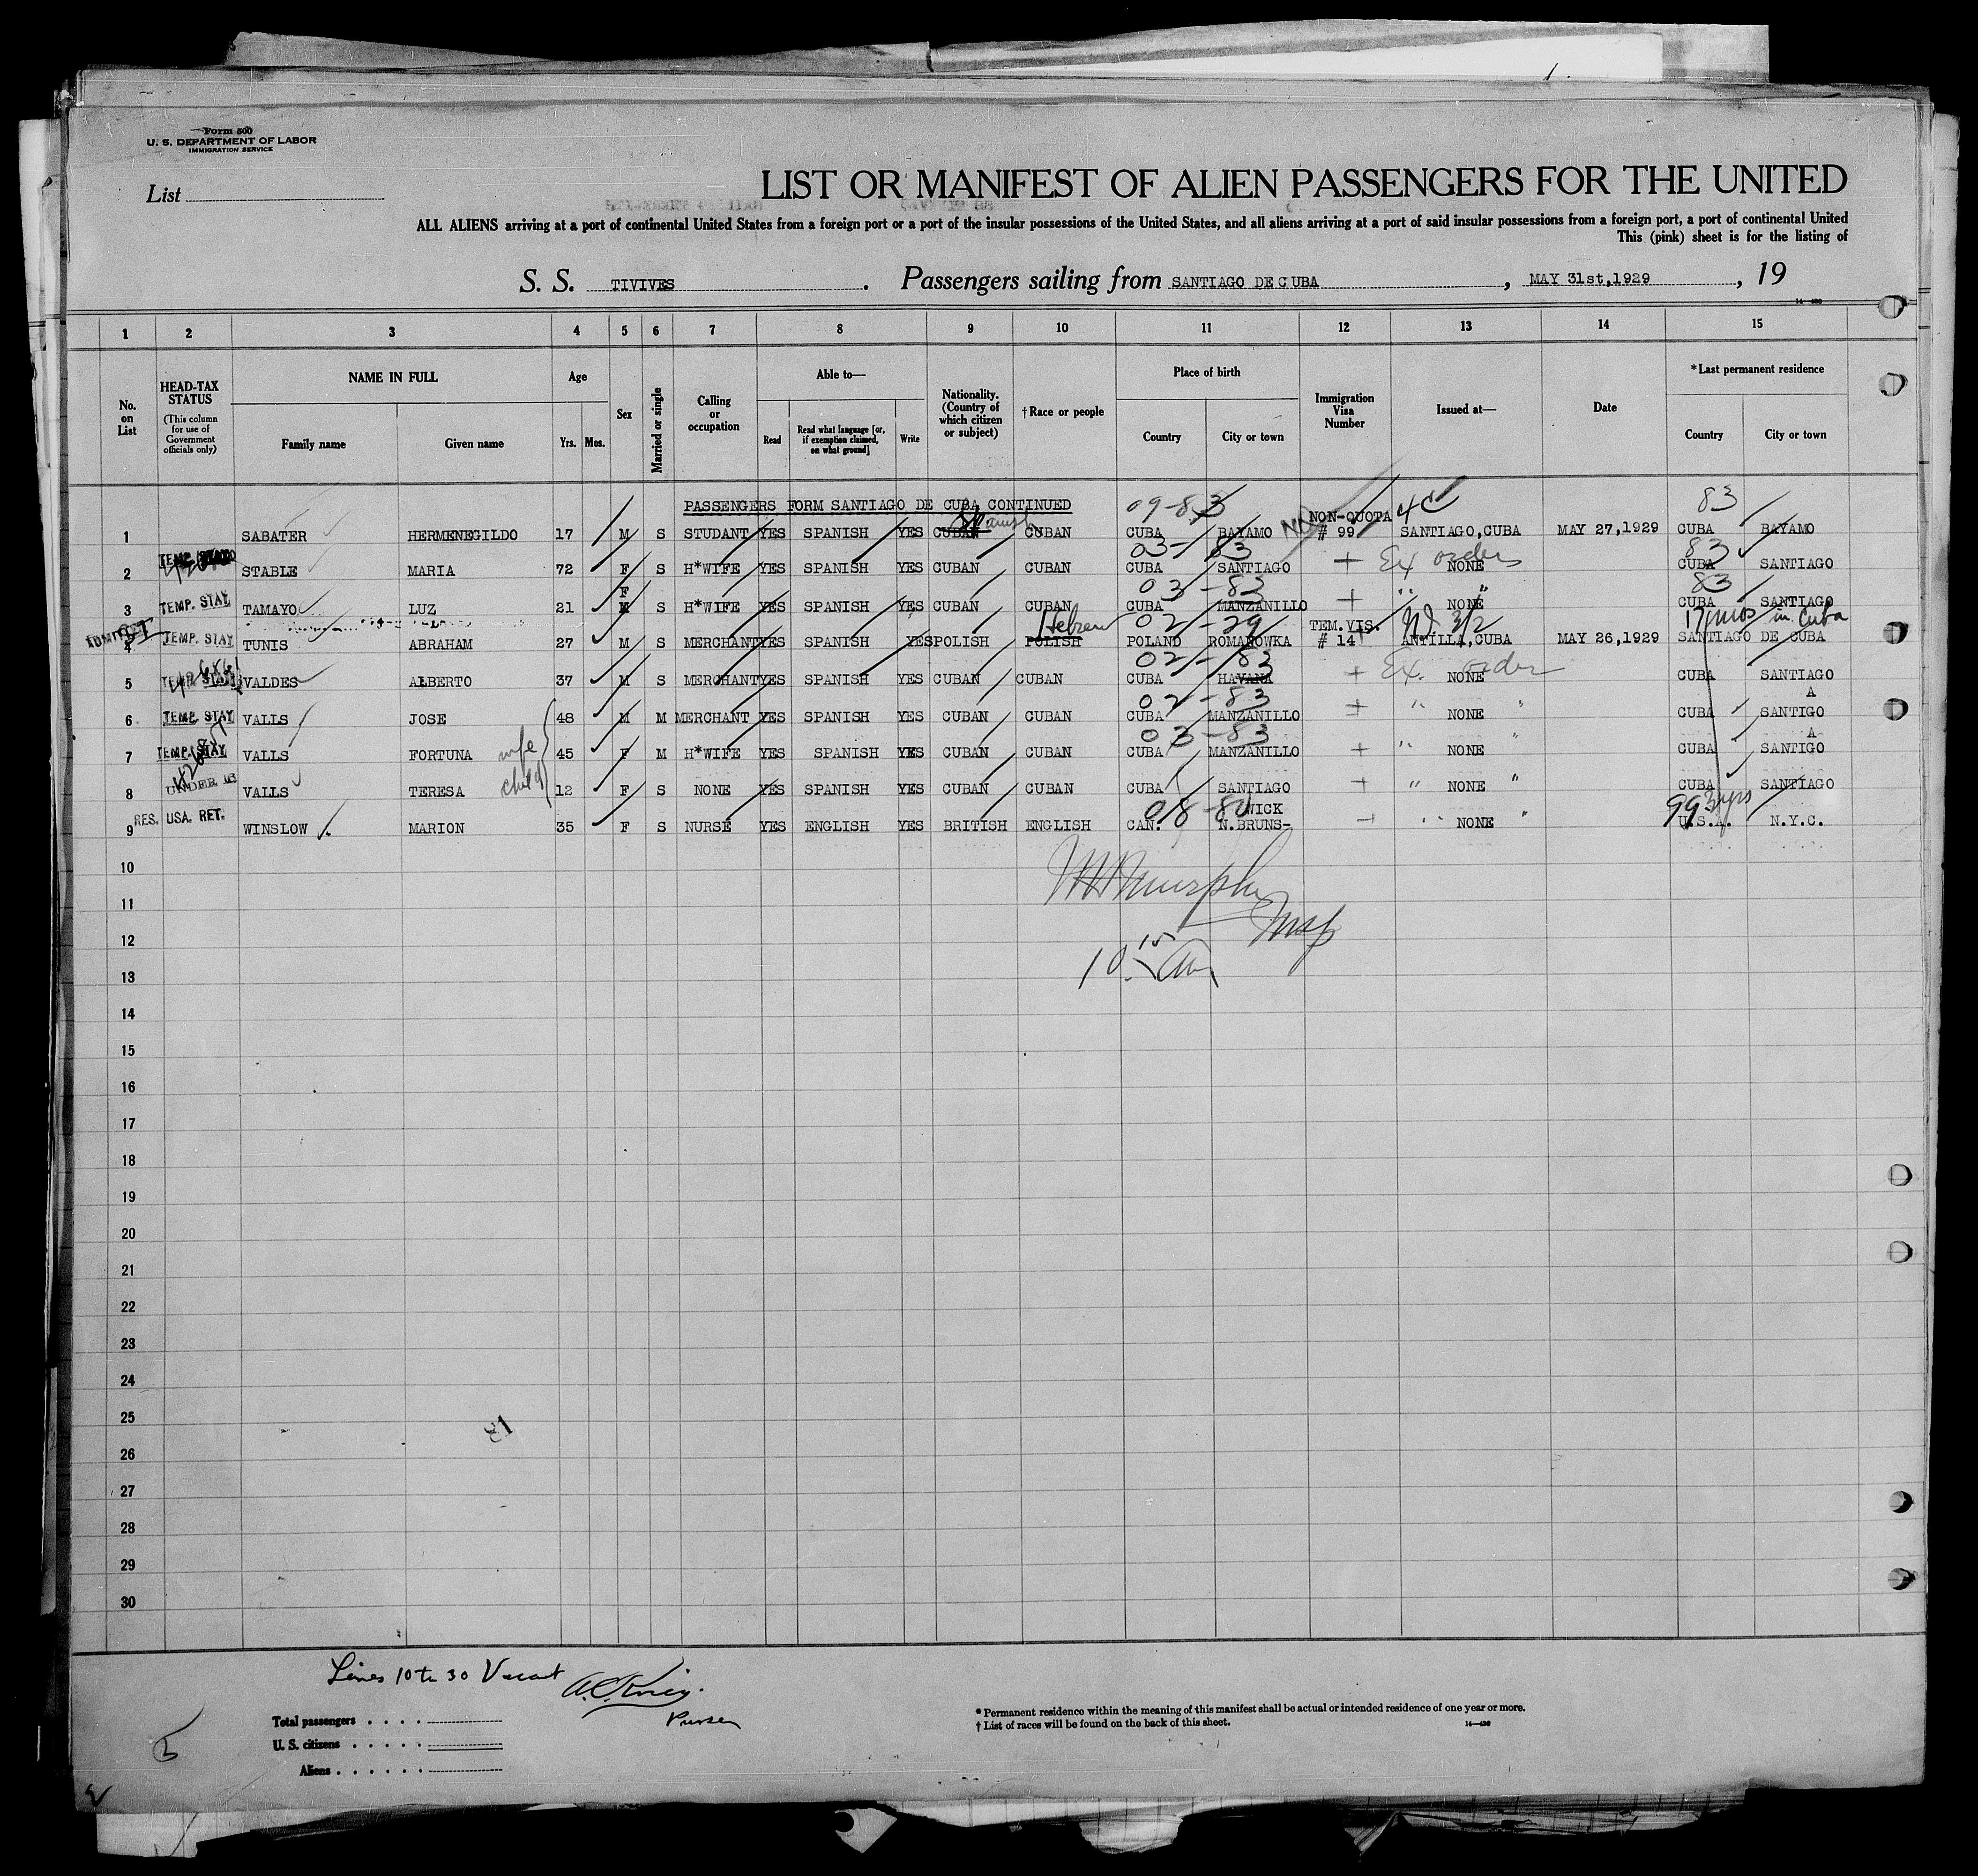 Form 500
U. S. DEPARTMENT OF LABOR
IMMIGRATION SERVICE
List
LIST OR MANIFEST OF ALIEN PASSENGERS FOR THE UNITED
ALL ALIENS arriving at a port of continental United States from a foreign port or a port of the insular possessions of the United States, and all aliens arriving at a port of said insular possessions from a foreign port, a port of continental United
This (pink) sheet is for the listing of
S. S. TIVIVES. Passengers sailing from SANTIAGO DE CUBA, MAY 31st,1929, 19
14-480
1 2 3 4 5 6 7 8 9 10 11 12 13 14 15
No. on List
HEAD-TAX STATUS
(This column for use of Government officials only)
NAME IN FULL
Family name
Given name
Age
Yrs. Mos.
Sex
Married or single
Calling or occupation
Able to—
Read
Read what language [or, if exemption claimed, on what ground]
Write
Nationality. (Country of which citizen or subject)
† Race or people
Place of birth
Country
City or town
Immigration Visa Number
Issued at—
Date
* Last permanent residence
Country
City or town
PASSENGERS FORM SANTIAGO DE CUBA CONTINUED 09-83 NON-QUOTA 4c 83
Spanish
1 SABATER HERMENEGILDO 17 M S STUDANT YES SPANISH YES CUBAN CUBAN CUBA BAYAMO # 99 SANTIAGO,CUBA MAY 27,1929 CUBA BAYAMO
TEMP. STAY 03-83 Ex order 83
2 STABLE MARIA 72 F S H*WIFE YES SPANISH YES CUBAN CUBAN CUBA SANTIAGO + NONE CUBA SANTIAGO
F 03-83 " " 83
3 TEMP. STAY TAMAYO LUZ 21 M S H*WIFE YES SPANISH YES CUBAN CUBAN CUBA MANZANILLO + NONE CUBA SANTIAGO
ADMITTED Hebrew 02-29 TEM.VIS. 3/2 17 mos in Cuba
4 TEMP. STAY TUNIS ABRAHAM 27 M S MERCHANT YES SPANISH YES POLISH POLISH POLAND ROMANOWKA # 14 ANTILLA,CUBA MAY 26,1929 SANTIAGO DE CUBA
02-83 Ex. order
5 TEMP. STAY VALDES ALBERTO 37 M S MERCHANT YES SPANISH YES CUBAN CUBAN CUBA HAVANA + NONE CUBA SANTIAGO
02-83 A
6 TEMP. STAY VALLS JOSE 48 M M MERCHANT YES SPANISH YES CUBAN CUBAN CUBA MANZANILLO + " NONE " CUBA SANTIGO
03-83 A
7 TEMP. STAY VALLS FORTUNA wife 45 F M H*WIFE YES SPANISH YES CUBAN CUBAN CUBA MANZANILLO + " NONE " CUBA SANTIGO
8 UNDER 16 VALLS TERESA child 12 F S NONE YES SPANISH YES CUBAN CUBAN CUBA SANTIAGO + " NONE " CUBA SANTIAGO
RES. USA. RET. 08-80 WICK 99 3 yrs
9 WINSLOW MARION 35 F S NURSE YES ENGLISH YES BRITISH ENGLISH CAN. N.BRUNS- + " NONE " U.S.A. N.Y.C.
10
Murphy
11
Insp
12
10 15 am
13
14
15
16
17
18
19
20
21
22
23
24
25
26
27
28
29
30
Lines 10 to 30 Vacant
Purser
Total passengers
U. S. citizens
Aliens
* Permanent residence within the meaning of this manifest shall be actual or intended residence of one year or more.
† List of races will be found on the back of this sheet.